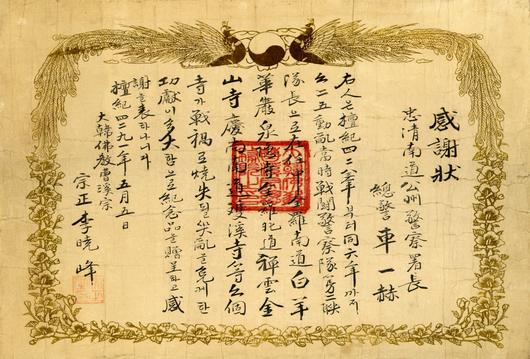 感謝狀
忠淸南道公州警察署長
總警 車一赫
右人은 檀紀四二八三年부터 同六年까지
六二五動亂當時 戰鬪警察隊 第二聯
隊長으로 在任中 全羅南道 白羊
華嚴 泉隱寺 全羅北道 禪雲 金
山寺 慶尙南道 雙溪寺 等 六個
寺가 戰禍로 燒失될 笑亂을 免케 한
功獻이 多大함으로 紀念品을 贈呈하고 感
謝를 表하나니다
檀紀四二九一年 五月 五日
大韓佛敎曹溪宗
宗正 李曉峰